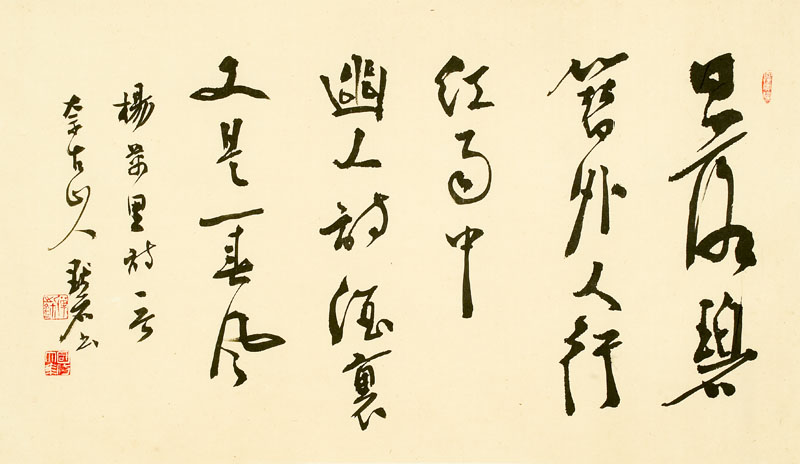 日落碧
簪外人行
紅雨中
幽人詩酒裏
又是一春風
楊萬里詩一首
奈古山人